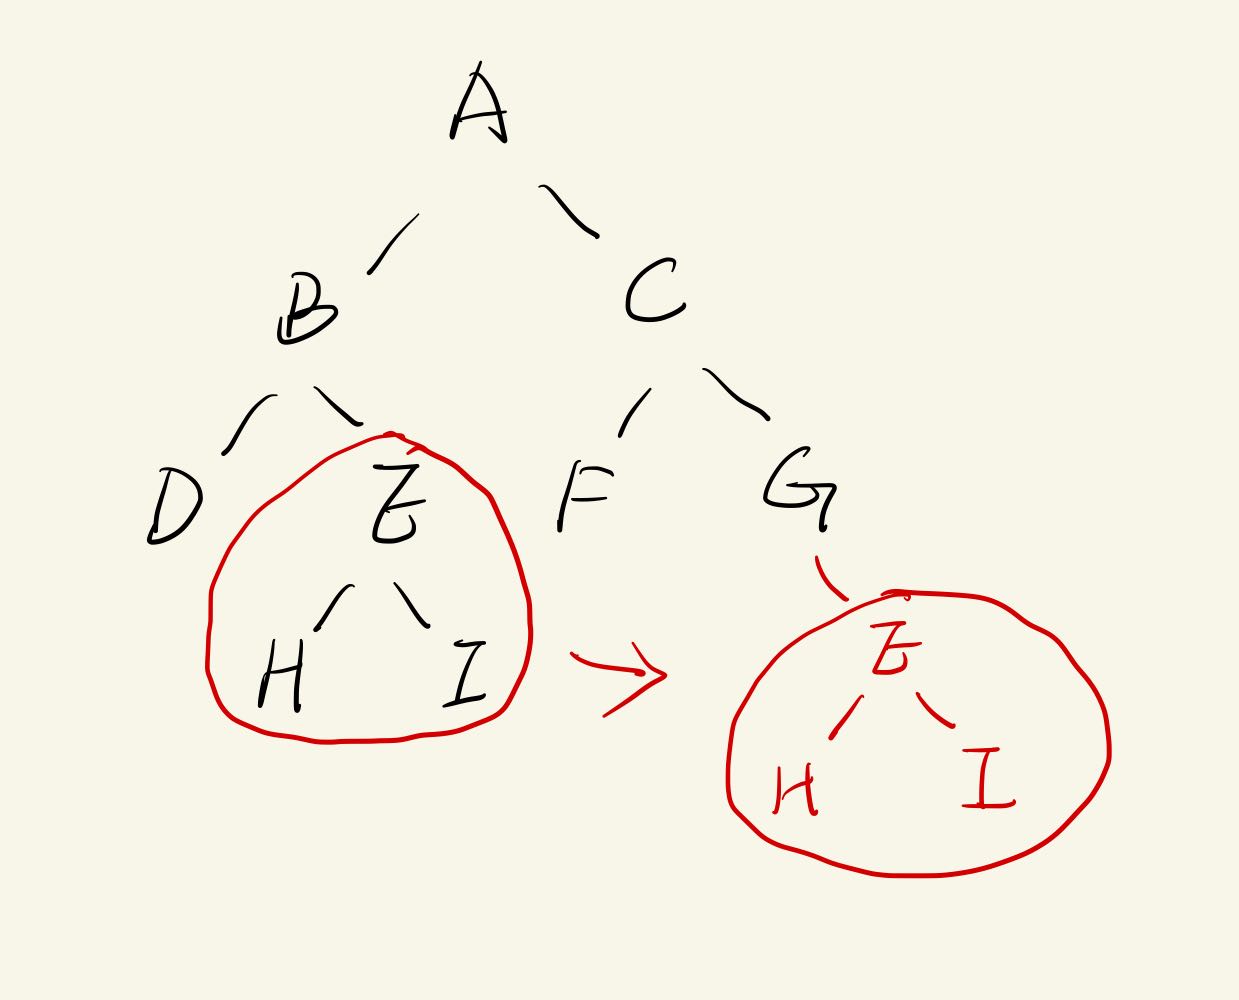 A
B C
D E F G
H I E
H I